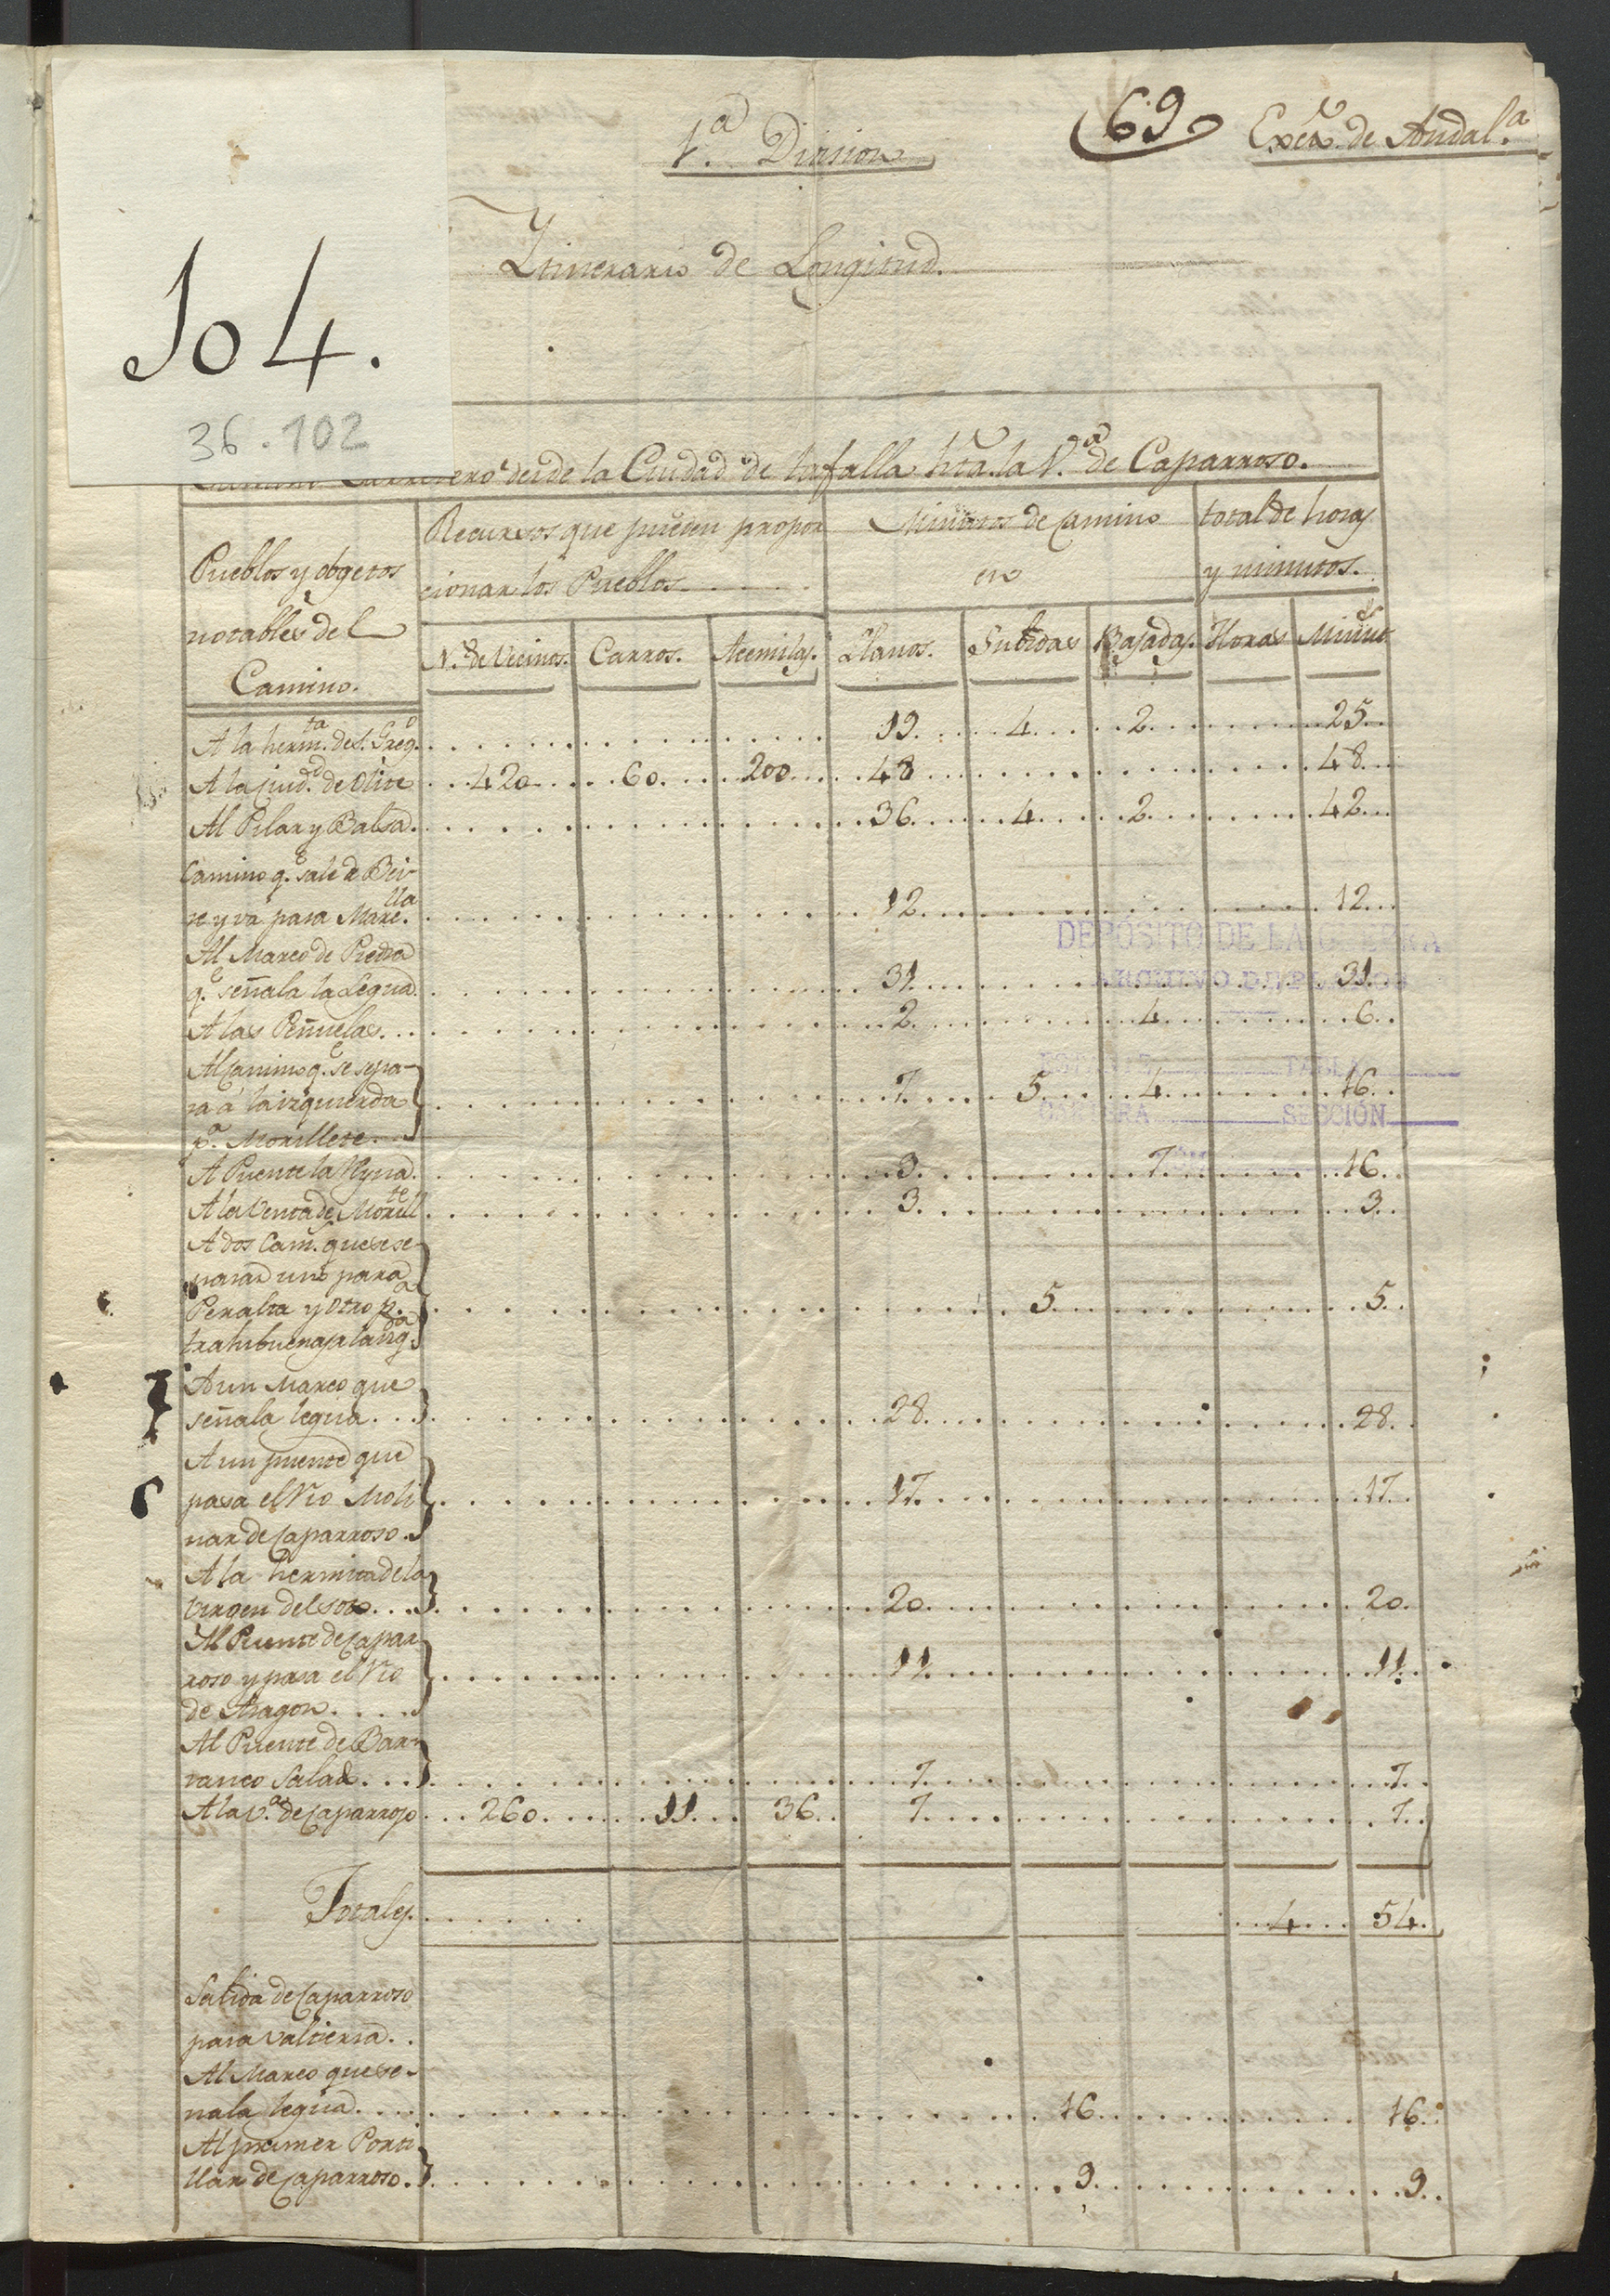 69
Exto. de Andal.a
1.a Division
Itinerario de Longitud.
104.
36.102
desde la Ciudad de tafalla hta. la V.a de Caparroso.
Pueblos y obgetos
notables del
Camino.
Recursos que pueden propor
cionar los Pueblos
Minutos de camino
en
total de horas
y minutos.
N.o de Vecinos. Carros. Acemilas. Llanos. Subidas Bajadas. Horas Minuts
A la herm.ta de S. Greg.o 19 4 2 25
A la Ciud.d de Olite 420 60 200 48 48
Al Pilar y Balsa. 36 4 2 42
Camino q.e sale de Bei-
re y va para Marc.lla 12 12
Al Marco de Piedra
q.e señala la Legua. 31 31
A las Peñuelas. 2 4 6
Al Camino q.e se sepa-
ra á la izquierda 7 5 4 16
p.a Morillete.
A Puente la Reyna. 3 7 16
A la Venta de Morill.te 3 3
A dos Cam.s que se se-
paran uno para
Peralta y otro p.a 5 5
trahibuenas a la izq.da
A un Marco que
señala legua. 28 28
A un puente que
pasa el Rio Moli 17 17
nar de Caparroso.
A la hermita de la
Virgen del soto. 20 20
Al Puente de Capar
roso y pasa el Rio 11 11
de Aragon.
Al Puente de Bar-
ranco Salad. 7 7
A la V.a de Caparroso 260 11 36 7 7
Totales. 4 54
Salida de Caparroso
para Valtierra.
Al Marco que se-
ñala legua. 16 16
Al primer Porti
llar de Caparroso. 9 9
DEPÓSITO DE LA GUERRA
ARCHIVO DE PLANOS
TABLA
SECCIÓN